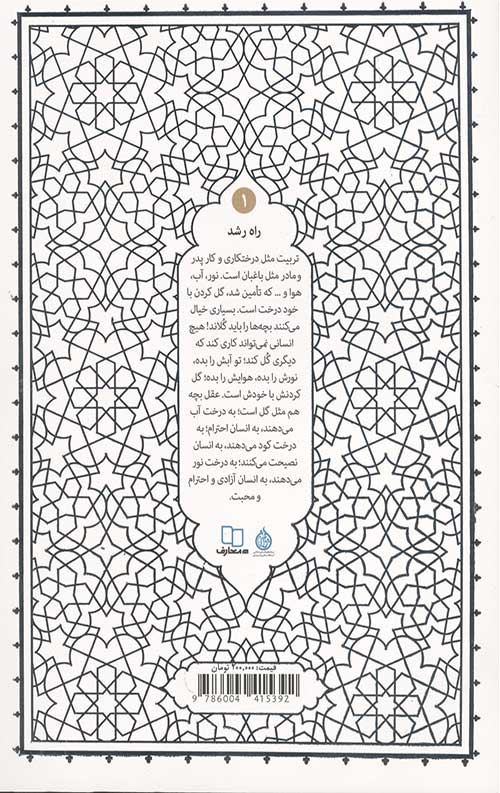 ۱
راه رشد
تربیت مثل درختکاری و کار پدر
و مادر مثل باغبان است. نور، آب،
هوا و ... که تأمین شد، گل کردن با
خود درخت است. بسیاری خیال
می‌کنند بچه‌ها را باید گُلاند! هیچ
انسانی نمی‌تواند کاری کند که
دیگری گُل کند؛ تو آبش را بده،
نورش را بده، هوایش را بده؛ گل
کردنش با خودش است. عقل بچه
هم مثل گل است؛ به درخت آب
می‌دهند، به انسان احترام؛ به
درخت کود می‌دهند، به انسان
نصیحت می‌کنند؛ به درخت نور
می‌دهند، به انسان آزادی و احترام
و محبت.
معارف
قیمت: ۲۰۰,۰۰۰ تومان
9 786004 415392